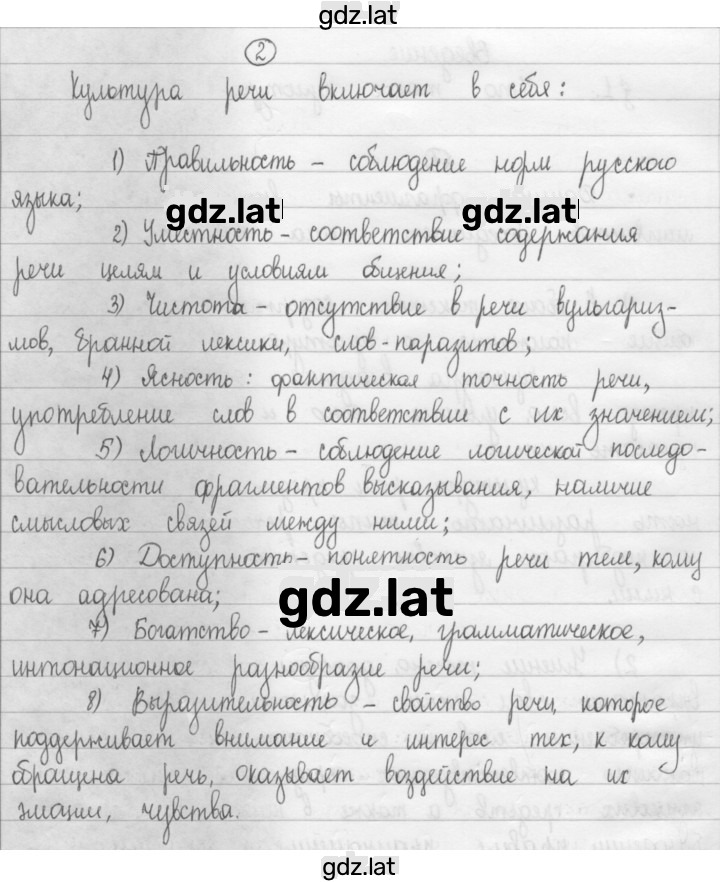 gdz.lat
2
Культура речи включает в себя:
1) Правильность - соблюдение норм русского
языка;
gdz.lat gdz.lat
2) Уместность - соответствие содержания
речи целям и условиям общения;
3) Чистота - отсутствие в речи вульгариз-
мов, бранной лексики, слов-паразитов;
4) Ясность: фактическая точность речи,
употребление слов в соответствие с их значением;
5) Логичность - соблюдение логической последо-
вательности фрагментов высказывания, наличие
смысловых связей между ними;
6) Доступность - понятность речи тем, кому
она адресована;
gdz.lat
7) Богатство - лексическое, грамматическое,
интонационное разнообразие речи;
8) Выразительность - свойство речи, которое
поддерживает внимание и интерес тех, к кому
обращена речь, оказывает воздействие на их
эмоции, чувства.
gdz.lat